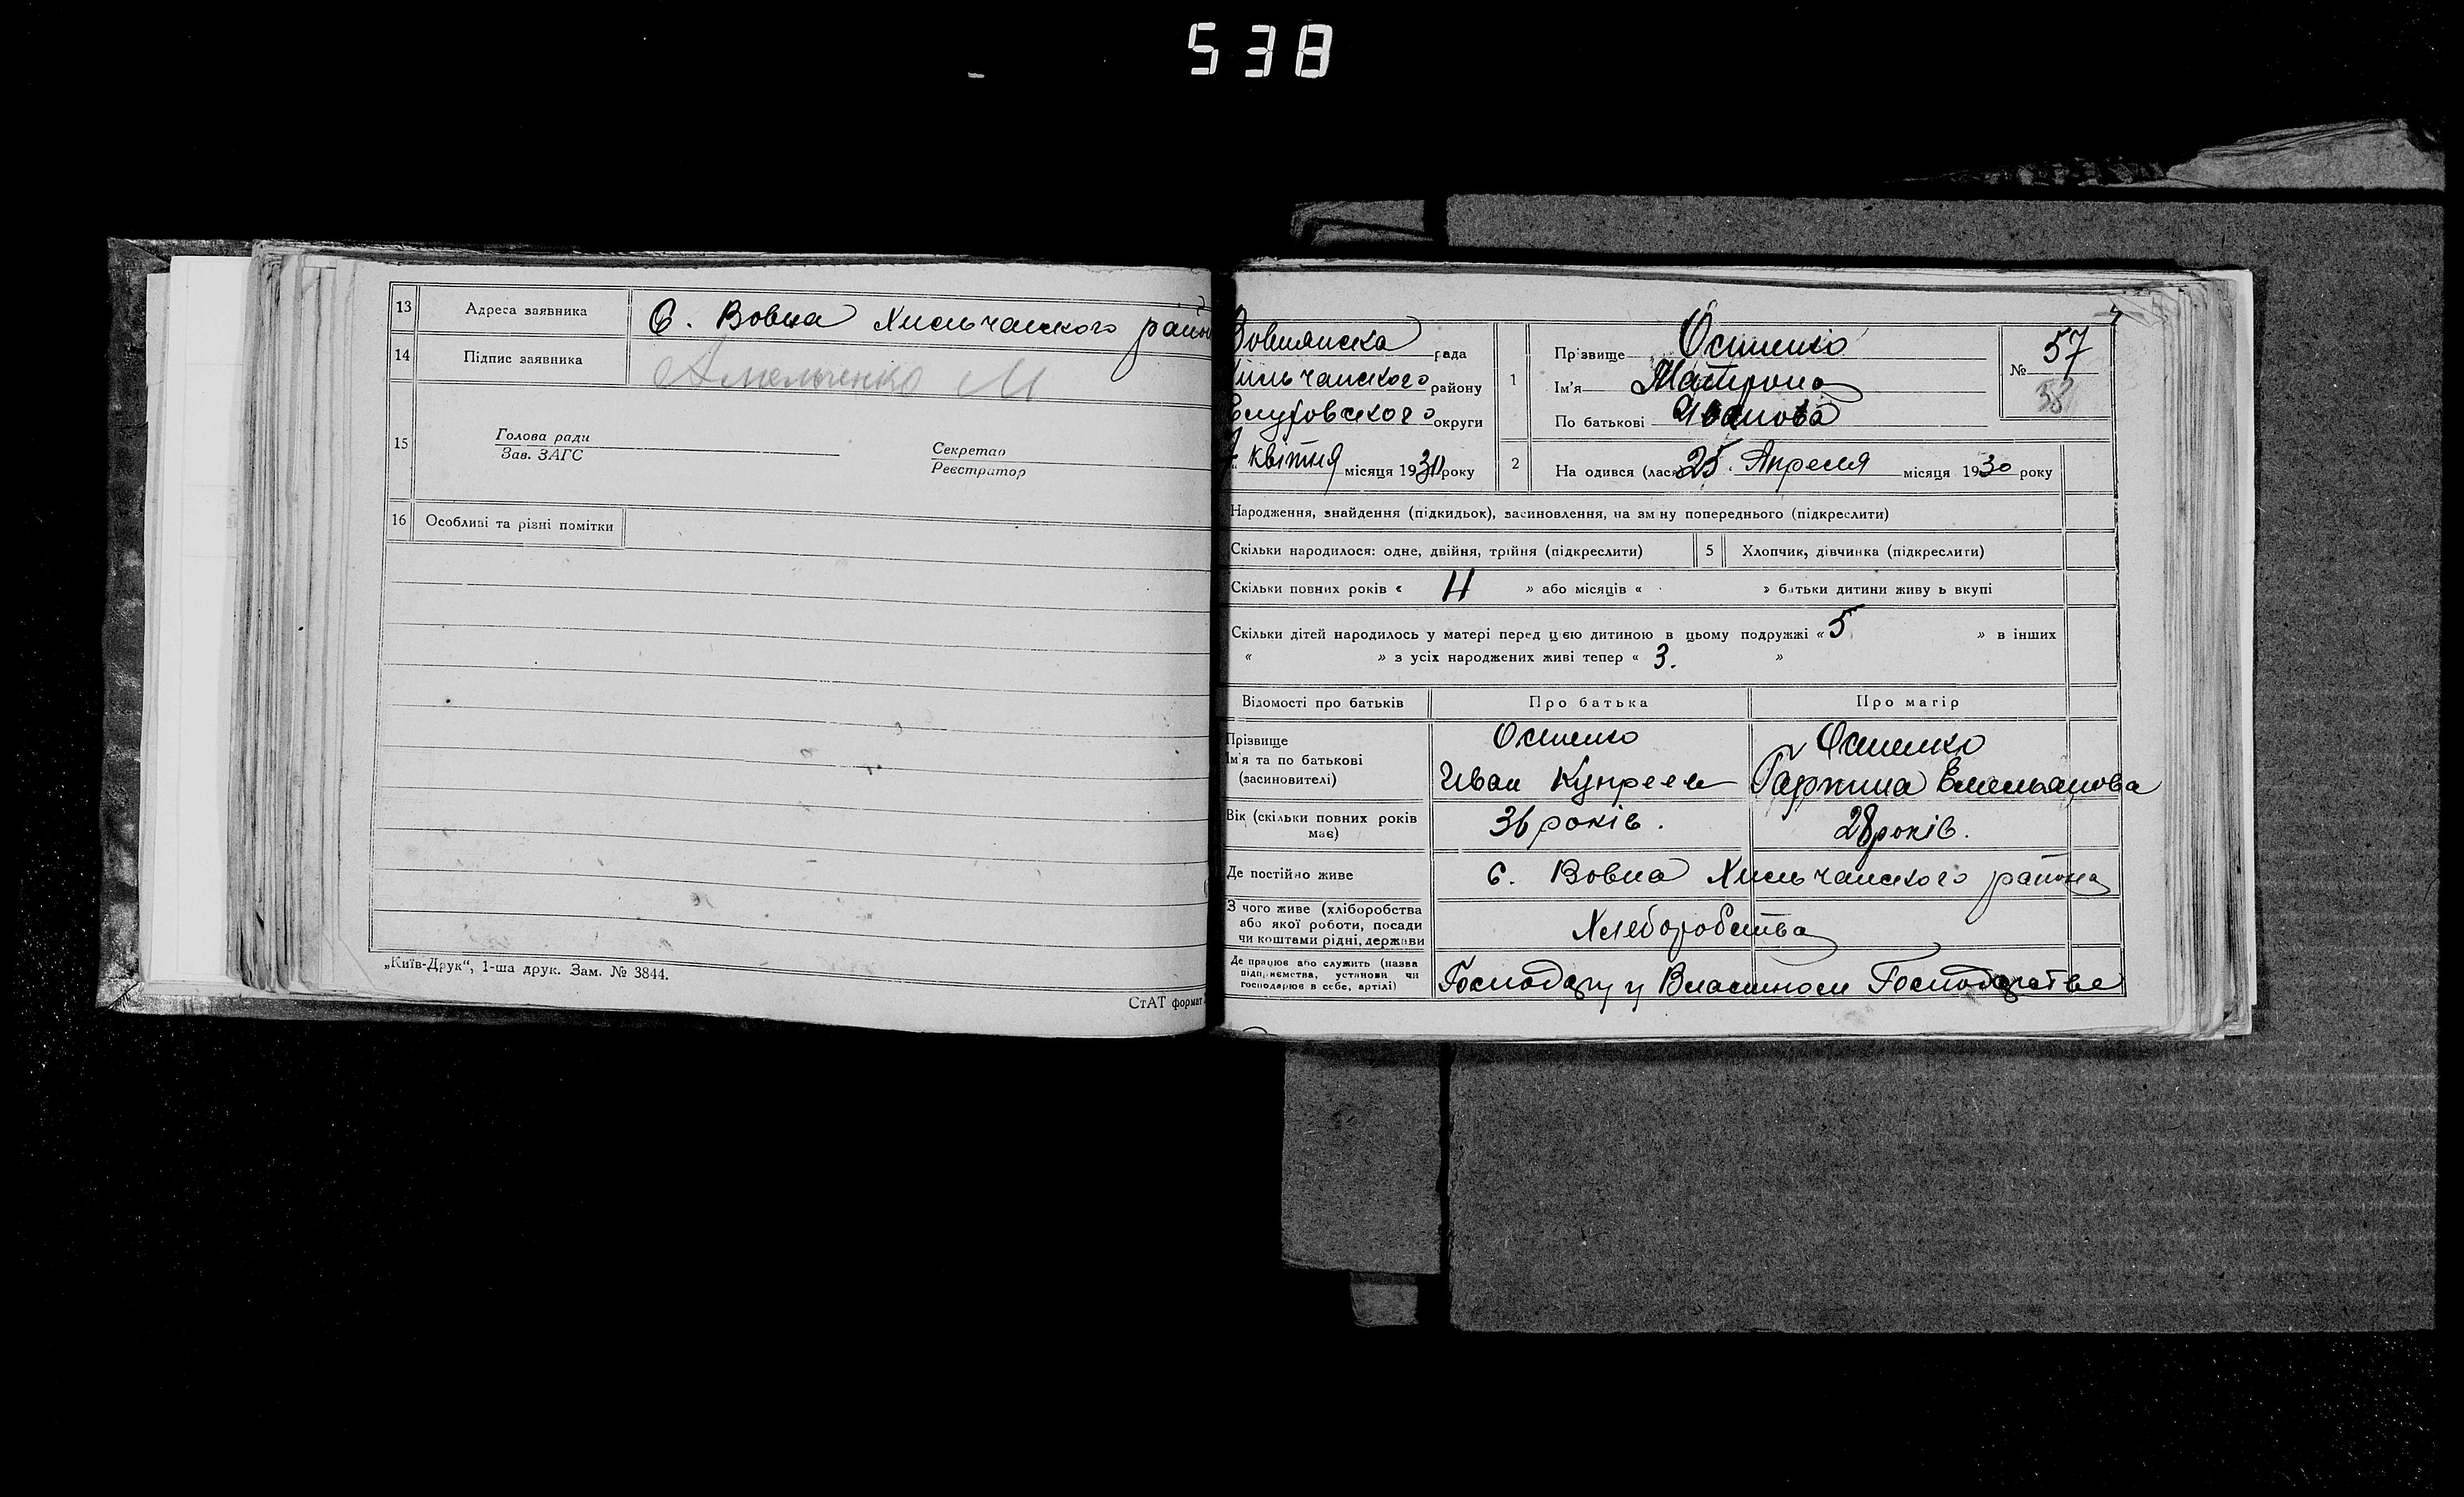 538
13 Адреса заявника С. Вовна Хильчанского район
14 Підпис заявника Амельченко М
15 Голова ради
Зав. ЗАГС
Секретар
Реєстратор
16 Особливі та різні помітки
„Київ-Друк“, 1-ша друк. Зам. № 3844.
СтАТ формат
Вовнянска рада
Хильчанского району
Глуховского округи
квітня місяця 1930 року
1 Прізвище Остенко
Ім'я Матрона
По батькові Иванова
№ 57
58
2 На одився (лася) 25 Апреля місяця 1930 року
Народження, знайдення (підкидьок), засиновлення, на зм ну попереднього (підкреслити)
Скільки народилося: одне, двійня, трійня (підкреслити)
5 Хлопчик, дівчинка (підкреслити)
Скільки повних років « 11 » або місяців « » батьки дитини живу ь вкупі
Скільки дітей народилось у матері перед цією дитиною в цьому подружжі « 5 » в інших
« » з усіх народжених живі тепер « 3. »
Відомості про батьків Про батька Про матір
Прізвище
Ім'я та по батькові
(засиновителі)
Остенко
Иван Купреев
Остенко
Емельянова
Вік (скільки повних років має)
36 років.
28 років.
Де постійно живе С. Вовна Хильчанского района
З чого живе (хліборобства
або якої роботи, посади
чи коштами рідні, держави
Хлеборобства
Де працює або служить (назва
підприємства, установи чи
господарює в себе, артілі)
Господару у Власном Господарстве